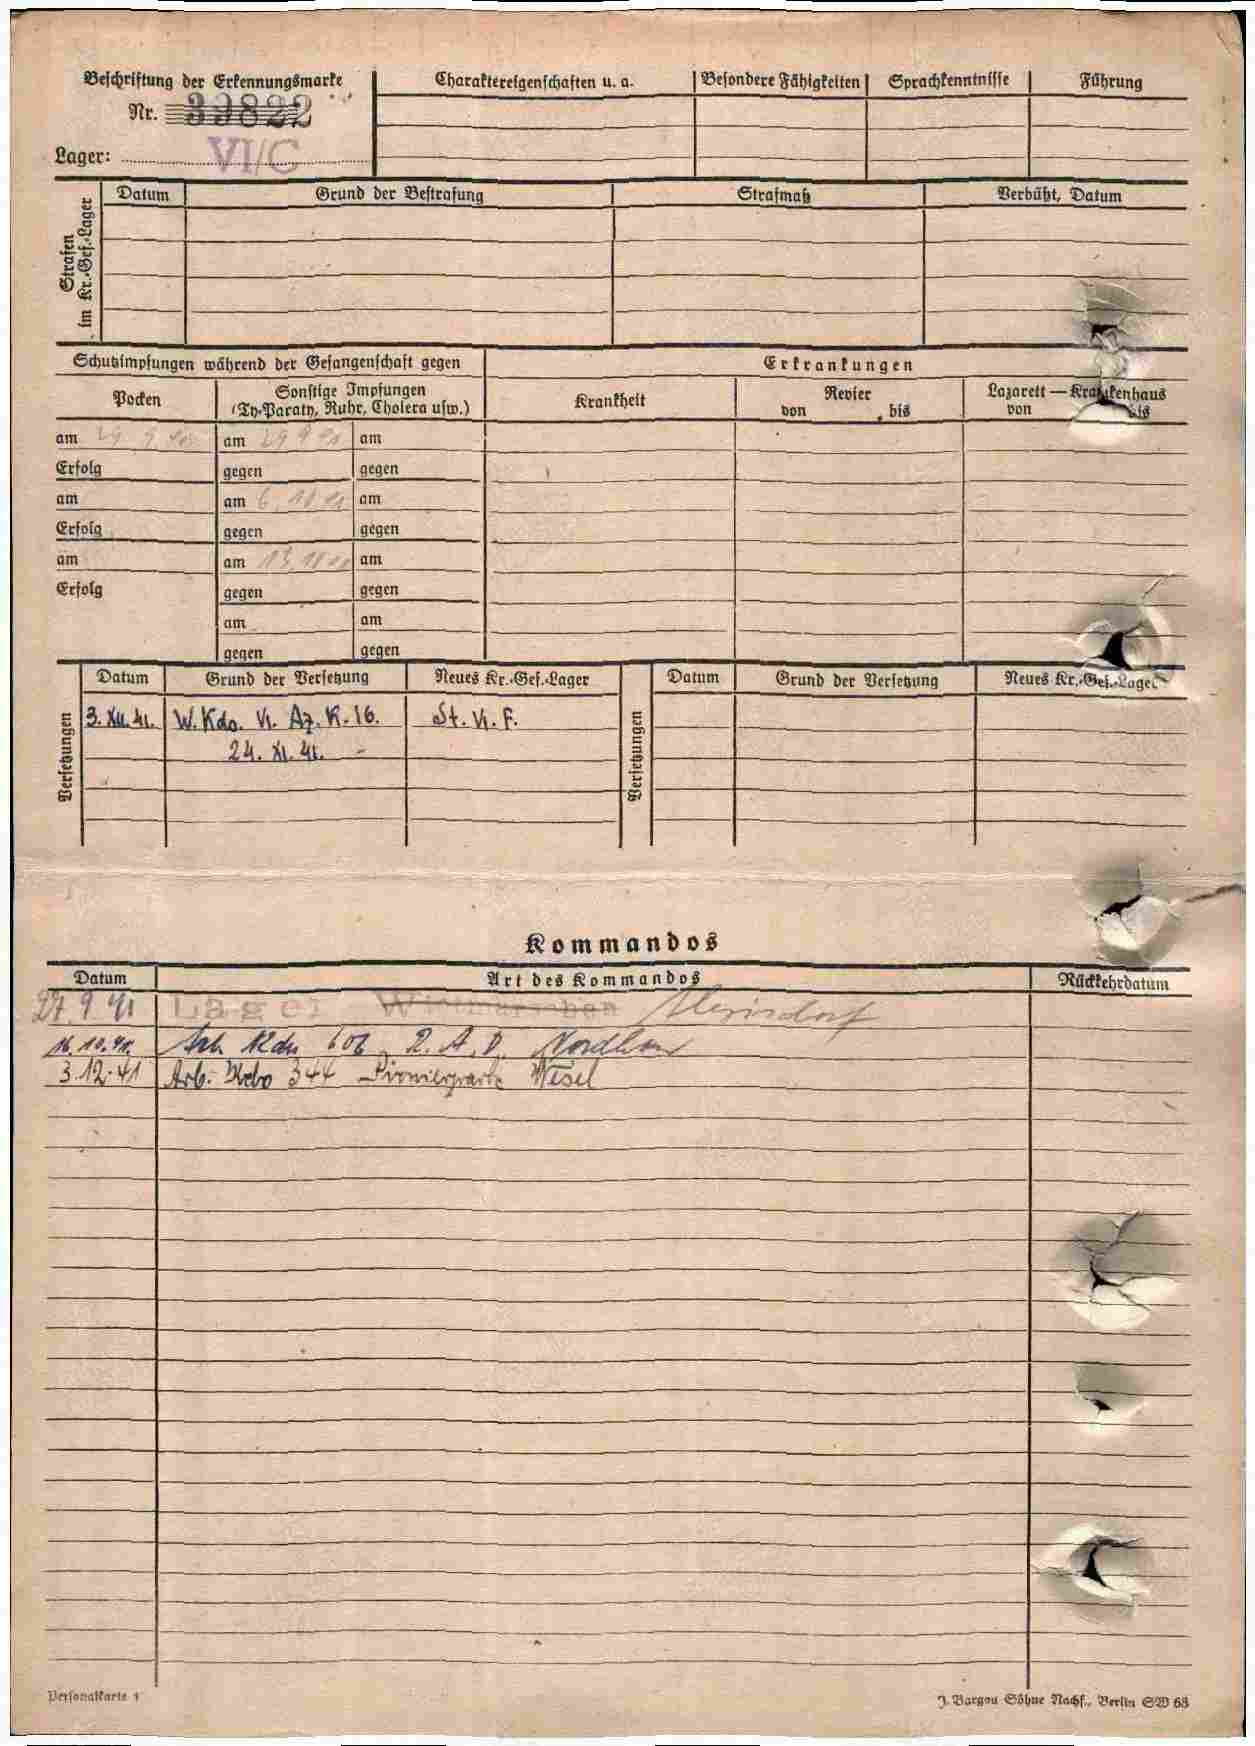 Beschriftung der Erkennungsmarke
Nr. 39822
Lager: VI/C
Charaktereigenschaften u. a.
Besondere Fähigkeiten
Sprachkenntnisse
Führung
Strafen
im Kr.-Gef.-Lager
Datum
Grund der Bestrafung
Strafmaß
Verbüßt, Datum
Schutzimpfungen während der Gefangenschaft gegen
Erkrankungen
Pocken
Sonstige Impfungen
(Ty-Paraty, Ruhr, Cholera usw.)
Krankheit
Revier
von bis
Lazarett — Krankenhaus
von bis
am 29 9 am 29 9 am
Erfolg gegen gegen
am am 6. 10 am
Erfolg gegen gegen
am am 13. 10 am
Erfolg gegen gegen
am am
gegen gegen
Versetzungen
Datum Grund der Versetzung Neues Kr.-Gef.-Lager
3. XII. 41. W. Kdo. VI. Az. K. 16. St. VI. F.
24. XI. 41. -
Versetzungen
Datum Grund der Versetzung Neues Kr.-Gef.-Lager
Kommandos
Datum Art des Kommandos Rückkehrdatum
27. 9 41 Lager Wietmarschen
16. 10. 41. Arb. Kdo 606 R. A. D.
3. 12. 41 Arb. Kdo 344 Pionierpark Wesel
Personalkarte 1
J. Bargou Söhne Nachf., Berlin SW 68